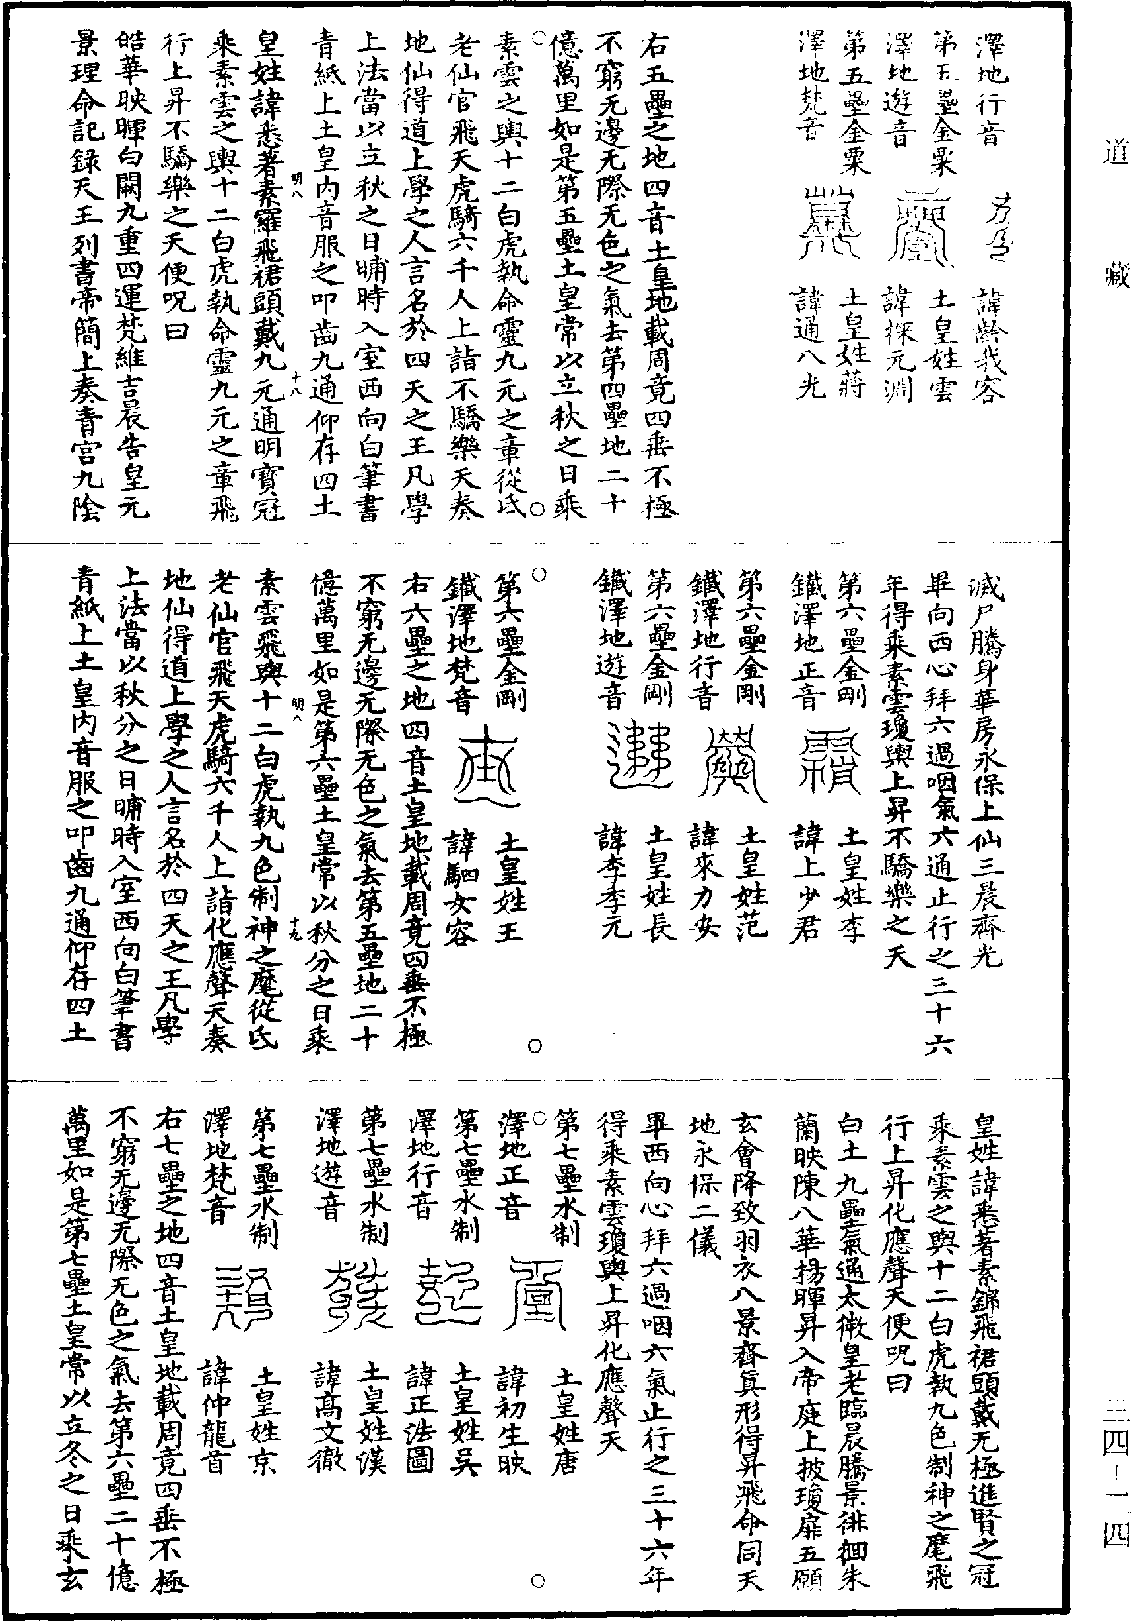 道藏
三四-一四
澤地行音 諱齡我容
第五壘金粟 土皇姓雲
澤地遊音 諱探元淵
第五壘金粟 土皇姓蔣
澤地梵音 諱通八光
右五壘之地四音土皇地載周竟四垂不極
不窮无邊无際无色之氣去第四壘地二十
億萬里如是第五壘土皇常以立秋之日乘
素雲之輿十二白虎執命靈九元之章從氐
老仙官飛天虎騎六千人上詣不驕樂天奏
地仙得道上學之人言名於四天之王凡學
上法當以立秋之日晡時入室西向白筆書
青紙上土皇内音服之叩齒九通仰存四土
皇姓諱悉著素羅飛裙頭戴九元通明寶冠
明八 十八
乘素雲之輿十二白虎執命靈九元之章飛
行上昇不驕樂之天便呪曰
皓華映暉白闕九重四運梵維吉晨告皇元
景理命記錄天王列書帝簡上奏青宮九陰
滅尸騰身華房永保上仙三晨齊光
畢向西心拜六過咽氣六通止行之三十六
年得乘素雲瓊輿上昇不驕樂之天
第六壘金剛 土皇姓李
鐵澤地正音 諱上少君
第六壘金剛 土皇姓范
鐵澤地行音 諱來力安
第六壘金剛 土皇姓長
鐵澤地遊音 諱李李元
第六壘金剛 土皇姓王
鐵澤地梵音 諱駟女容
右六壘之地四音土皇地載周竟四垂不極
不窮无邊无際无色之氣去第五壘地二十
億萬里如是第六壘土皇常以秋分之日乘
明八 十九
素雲飛輿十二白虎執九色制神之麾從氐
老仙官飛天虎騎六千人上詣化應聲天奏
地仙得道上學之人言名於四天之王凡學
上法當以秋分之日晡時入室西向白筆書
青紙上土皇内音服之叩齒九通仰存四土
皇姓諱悉著素錦飛裙頭戴无極進賢之冠
乘素雲之輿十二白虎執九色制神之麾飛
行上昇化應聲天便呪曰
白土九壘氣通太微皇老臨晨騰景徘徊朱
蘭映陳八華揚暉昇入帝庭上披瓊扉五願
玄會降致羽衣八景齊真形得昇飛命同天
地永保二儀
畢西向心拜六過咽六氣止行之三十六年
得乘素雲瓊輿上昇化應聲天
第七壘水制 土皇姓唐
澤地正音 諱初生映
第七壘水制 土皇姓吳
澤地行音 諱正法圖
第七壘水制 土皇姓漢
澤地遊音 諱高文徹
第七壘水制 土皇姓京
澤地梵音 諱仲龍首
右七壘之地四音土皇地載周竟四垂不極
不窮无邊无際无色之氣去第六壘二十億
萬里如是第七壘土皇常以立冬之日乘玄